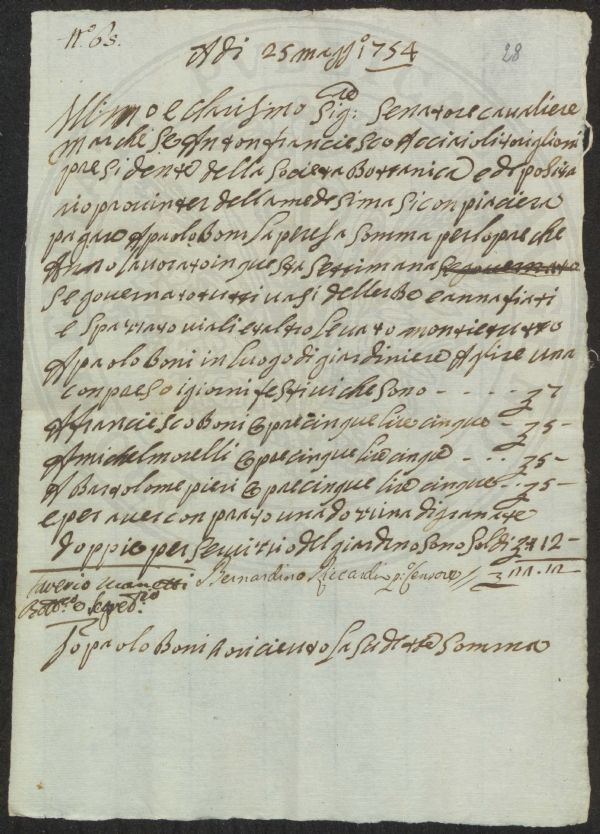 N.º 63.
28
Adi 25 maggº 1754
Illmo e Clarisimo Sig.re Senatore cavaliere
marchese Antonfranciesco Acciaioli toriglioni
presidente della Societa Bottanica e diposita
rio pro inter della medesima si conpiaciera
pagare A paolo Boni la presa Somma per lopre che
Anno lavorato in questa Settimana se governato
Se governato tutti i vasi dellerbe e annafiati
e Spazzato viali et altro levato montie tutto
A paolo Boni in luogo di giardiniere A lire una
conpreso i giorni festivi che sono - - - - - 7
A franciesco Boni opre cinque lire cinque - 5 -
A michel morelli opre cinque lire cinque - - 5 -
A Bartolome pieri opre cinque lire cinque - 5 -
e per aver conprato una dozzina di granate
doppie per servizio del giardino sono soldi 12 -
Saverio Manetti
Bott.co e Segret.rio
Bernardino Riccardi po: Censore //
Io paolo Boni o riceuto la sudette Somma